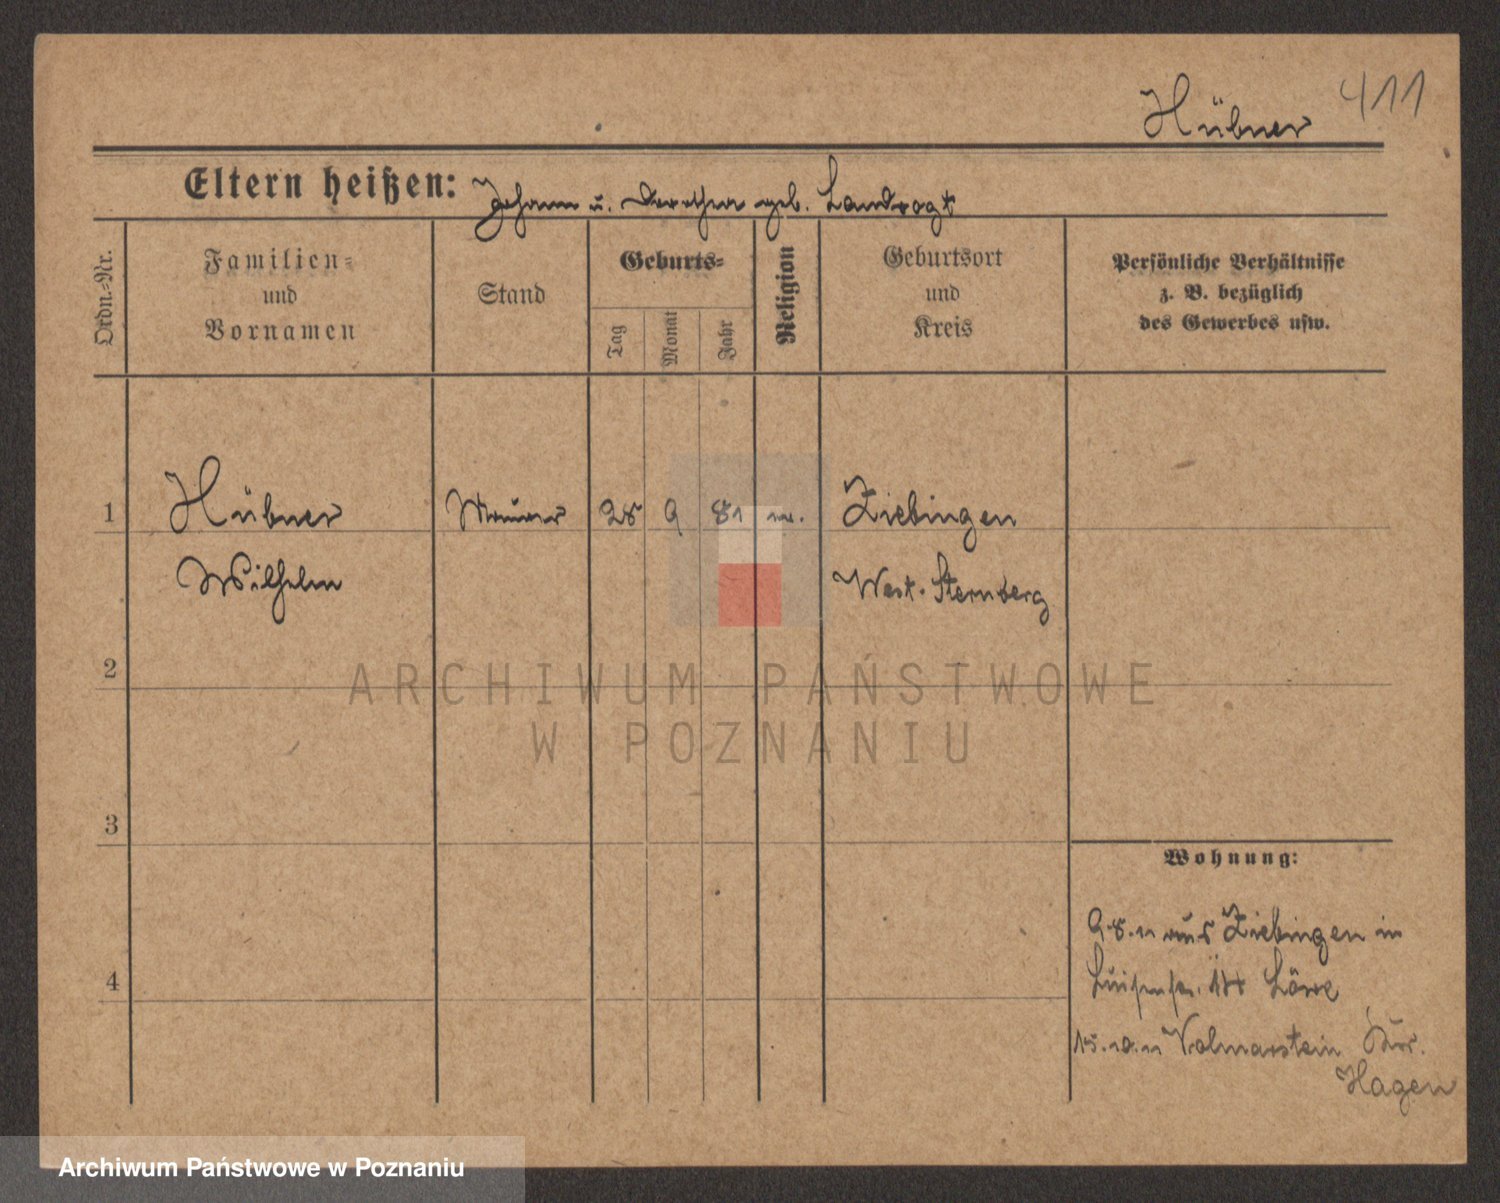 Hübner 411
Eltern heißen: Johann u. Dorothea geb. Landvogt
Ordn.-Nr.
Familien-
und
Vornamen
Stand
Geburts-
Tag
Monat
Jahr
Religion
Geburtsort
und
Kreis
Persönliche Verhältnisse
z. B. bezüglich
des Gewerbes usw.
1 Hübner Maurer 28 9 81 Ziebingen
Wilhelm West-Sternberg
2
ARCHIWUM PAŃSTWOWE
W POZNANIU
3
Wohnung:
9.8.11 aus Ziebingen in
4 Luisenstr. Löwe
15.10.11 Volmarstein
Hagen
Archiwum Państwowe w Poznaniu